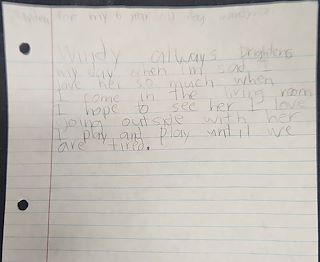 for my 6 year old dog
Windy allways brightens
my day when I'm sad
love her so much when
I come in the living room
I hope to see her I love
going outside with her
I play and play until we
are tired.